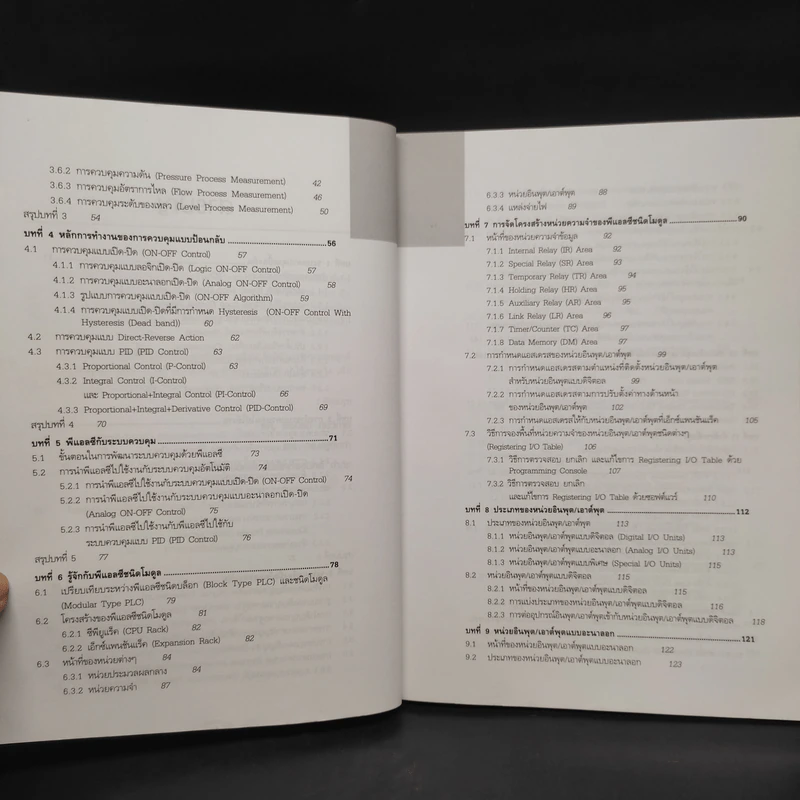 3.6.2 การควบคุมความดัน (Pressure Process Measurement) 42
3.6.3 การควบคุมอัตราการไหล (Flow Process Measurement) 46
3.6.4 การควบคุมระดับของเหลว (Level Process Measurement) 50
สรุปบทที่ 3 54
บทที่ 4 หลักการทำงานของการควบคุมแบบป้อนกลับ 56
4.1 การควบคุมแบบเปิด-ปิด (ON-OFF Control) 57
4.1.1 การควบคุมแบบลอจิกเปิด-ปิด (Logic ON-OFF Control) 57
4.1.2 การควบคุมแบบอะนาลอกเปิด-ปิด (Analog ON-OFF Control) 58
4.1.3 รูปแบบการควบคุมแบบเปิด-ปิด (ON-OFF Algorithm) 59
4.1.4 การควบคุมแบบเปิด-ปิดที่มีการกำหนด Hysteresis (ON-OFF Control With
Hysteresis (Dead band)) 60
4.2 การควบคุมแบบ Direct-Reverse Action 62
4.3 การควบคุมแบบ PID (PID Control) 63
4.3.1 Proportional Control (P-Control) 63
4.3.2 Integral Control (I-Control)
และ Proportional+Integral Control (PI-Control) 66
4.3.3 Proportional+Integral+Derivative Control (PID-Control) 69
สรุปบทที่ 4 70
บทที่ 5 พีแอลซีกับระบบควบคุม 71
5.1 ขั้นตอนในการพัฒนาระบบควบคุมด้วยพีแอลซี 73
5.2 การนำพีแอลซีไปใช้งานกับระบบควบคุมอัตโนมัติ 74
5.2.1 การนำพีแอลซีไปใช้งานกับระบบควบคุมแบบเปิด-ปิด (ON-OFF Control) 74
5.2.2 การนำพีแอลซีไปใช้งานกับระบบควบคุมแบบอะนาลอกเปิด-ปิด
(Analog ON-OFF Control) 75
5.2.3 การนำพีแอลซีไปใช้งานกับพีแอลซีไปใช้กับ
ระบบควบคุมแบบ PID (PID Control) 76
สรุปบทที่ 5 77
บทที่ 6 รู้จักกับพีแอลซีชนิดโมดูล 78
6.1 เปรียบเทียบระหว่างพีแอลซีชนิดบล็อก (Block Type PLC) และชนิดโมดูล
(Modular Type PLC) 79
6.2 โครงสร้างของพีแอลซีชนิดโมดูล 81
6.2.1 ซีพียูแร็ค (CPU Rack) 82
6.2.2 เอ็กซ์แพนชันแร็ค (Expansion Rack) 82
6.3 หน้าที่ของหน่วยต่างๆ 84
6.3.1 หน่วยประมวลผลกลาง 84
6.3.2 หน่วยความจำ 87
6.3.3 หน่วยอินพุต/เอาต์พุต 88
6.3.4 แหล่งจ่ายไฟ 89
บทที่ 7 การจัดโครงสร้างหน่วยความจำของพีแอลซีชนิดโมดูล 90
7.1 หน้าที่ของหน่วยความจำข้อมูล 92
7.1.1 Internal Relay (IR) Area 92
7.1.2 Special Relay (SR) Area 93
7.1.3 Temporary Relay (TR) Area 94
7.1.4 Holding Relay (HR) Area 95
7.1.5 Auxiliary Relay (AR) Area 95
7.1.6 Link Relay (LR) Area 96
7.1.7 Timer/Counter (TC) Area 97
7.1.8 Data Memory (DM) Area 97
7.2 การกำหนดแอสเดรสของหน่วยอินพุต/เอาต์พุต 99
7.2.1 การกำหนดแอสเดรสตามตำแหน่งที่ติดตั้งหน่วยอินพุต/เอาต์พุต
สำหรับหน่วยอินพุตแบบดิจิตอล 99
7.2.2 การกำหนดแอสเดรสตามการปรับตั้งค่าทางด้านหน้า
ของหน่วยอินพุต/เอาต์พุต 102
7.2.3 การกำหนดแอสเดรสให้กับหน่วยอินพุต/เอาต์พุตที่เอ็กซ์แพนชันแร็ค 105
7.3 วิธีการจองพื้นที่หน่วยความจำของหน่วยอินพุต/เอาต์พุตชนิดต่างๆ
(Registering I/O Table) 106
7.3.1 วิธีการตรวจสอบ ยกเลิก และแก้ไขการ Registering I/O Table ด้วย
Programming Console 107
7.3.2 วิธีการตรวจสอบ ยกเลิก
และแก้ไขการ Registering I/O Table ด้วยซอฟต์แวร์ 110
บทที่ 8 ประเภทของหน่วยอินพุต/เอาต์พุต 112
8.1 ประเภทของหน่วยอินพุต/เอาต์พุต 113
8.1.1 หน่วยอินพุต/เอาต์พุตแบบดิจิตอล (Digital I/O Units) 113
8.1.2 หน่วยอินพุต/เอาต์พุตแบบอะนาลอก (Analog I/O Units) 113
8.1.3 หน่วยอินพุต/เอาต์พุตแบบพิเศษ (Special I/O Units) 115
8.2 หน่วยอินพุต/เอาต์พุตแบบดิจิตอล 115
8.2.1 หน้าที่ของหน่วยอินพุต/เอาต์พุตแบบดิจิตอล 115
8.2.2 การแบ่งประเภทของหน่วยอินพุต/เอาต์พุตแบบดิจิตอล 116
8.2.3 การต่ออุปกรณ์อินพุต/เอาต์พุตเข้ากับหน่วยอินพุต/เอาต์พุตแบบดิจิตอล 118
บทที่ 9 หน่วยอินพุต/เอาต์พุตแบบอะนาลอก 121
9.1 หน้าที่ของหน่วยอินพุต/เอาต์พุตแบบอะนาลอก 122
9.2 ประเภทของหน่วยอินพุต/เอาต์พุตแบบอะนาลอก 123